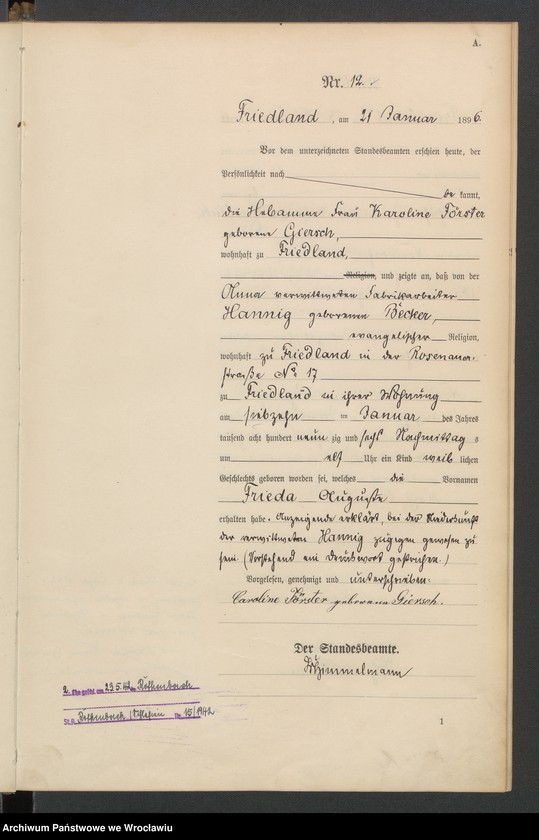 A.
Nr. 12.
Friedland, am 21 Januar 1896.
Vor dem unterzeichneten Standesbeamten erschien heute, der
Persönlichkeit nach
be kannt,
die Hebamme Frau Karoline Förster
geborene Giersch,
wohnhaft zu Friedland,
Religion, und zeigte an, daß von der
Anna verwittweten Fabrikarbeiter
Hannig geborenen Becker,
evangelischer Religion,
wohnhaft zu Friedland in der Rosenauer-
straße No 17
zu Friedland in ihrer Wohnung
am siebzehn ten Januar des Jahres
tausend acht hundert neun zig und sechs Nachmittag s
um elf Uhr ein Kind weib lichen
Geschlechts geboren worden sei, welches die Vornamen
Frieda Auguste
erhalten habe. Anzeigende erklärt, bei der Niederkunft
der verwittweten Hannig zugegen gewesen zu
sein. (Vorstehend ein Druckwort gestrichen.)
Vorgelesen, genehmigt und unterschrieben:
Caroline Förster geborene Giersch.
Der Standesbeamte.
Himmelmann
2. Ehe geschl. am 23.5.42 in Röthenbach
St.A. Röthenbach Nr. 15/1942
1
Archiwum Państwowe we Wrocławiu